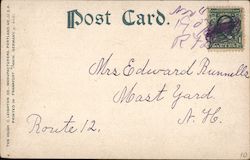 Post Card.
THE HUGH C. LEIGHTON CO., MANUFACTURERS, PORTLAND, ME., U.S.A.
PRINTED IN FRANKFORT
Mrs Edward Runnells
Mast Yard
Route 12. N. H.